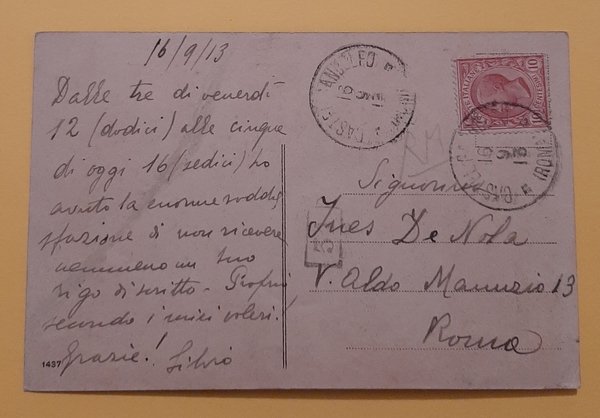 16/9/13
Dalle tre di venerdì
12 (dodici) alle cinque
di oggi 16 (sedici) ho
avuto la enorme soddi
sfazione di non ricevere
nemmeno un tuo
rigo di scritto - Proprio
secondo i miei voleri!
Grazie! Silvio
1437
CASTEL GANDOLFO
16 9 13
10
16 9 13
(ROMA)
Signorina
Ines De Nola
V. Aldo Manuzio 13
Roma